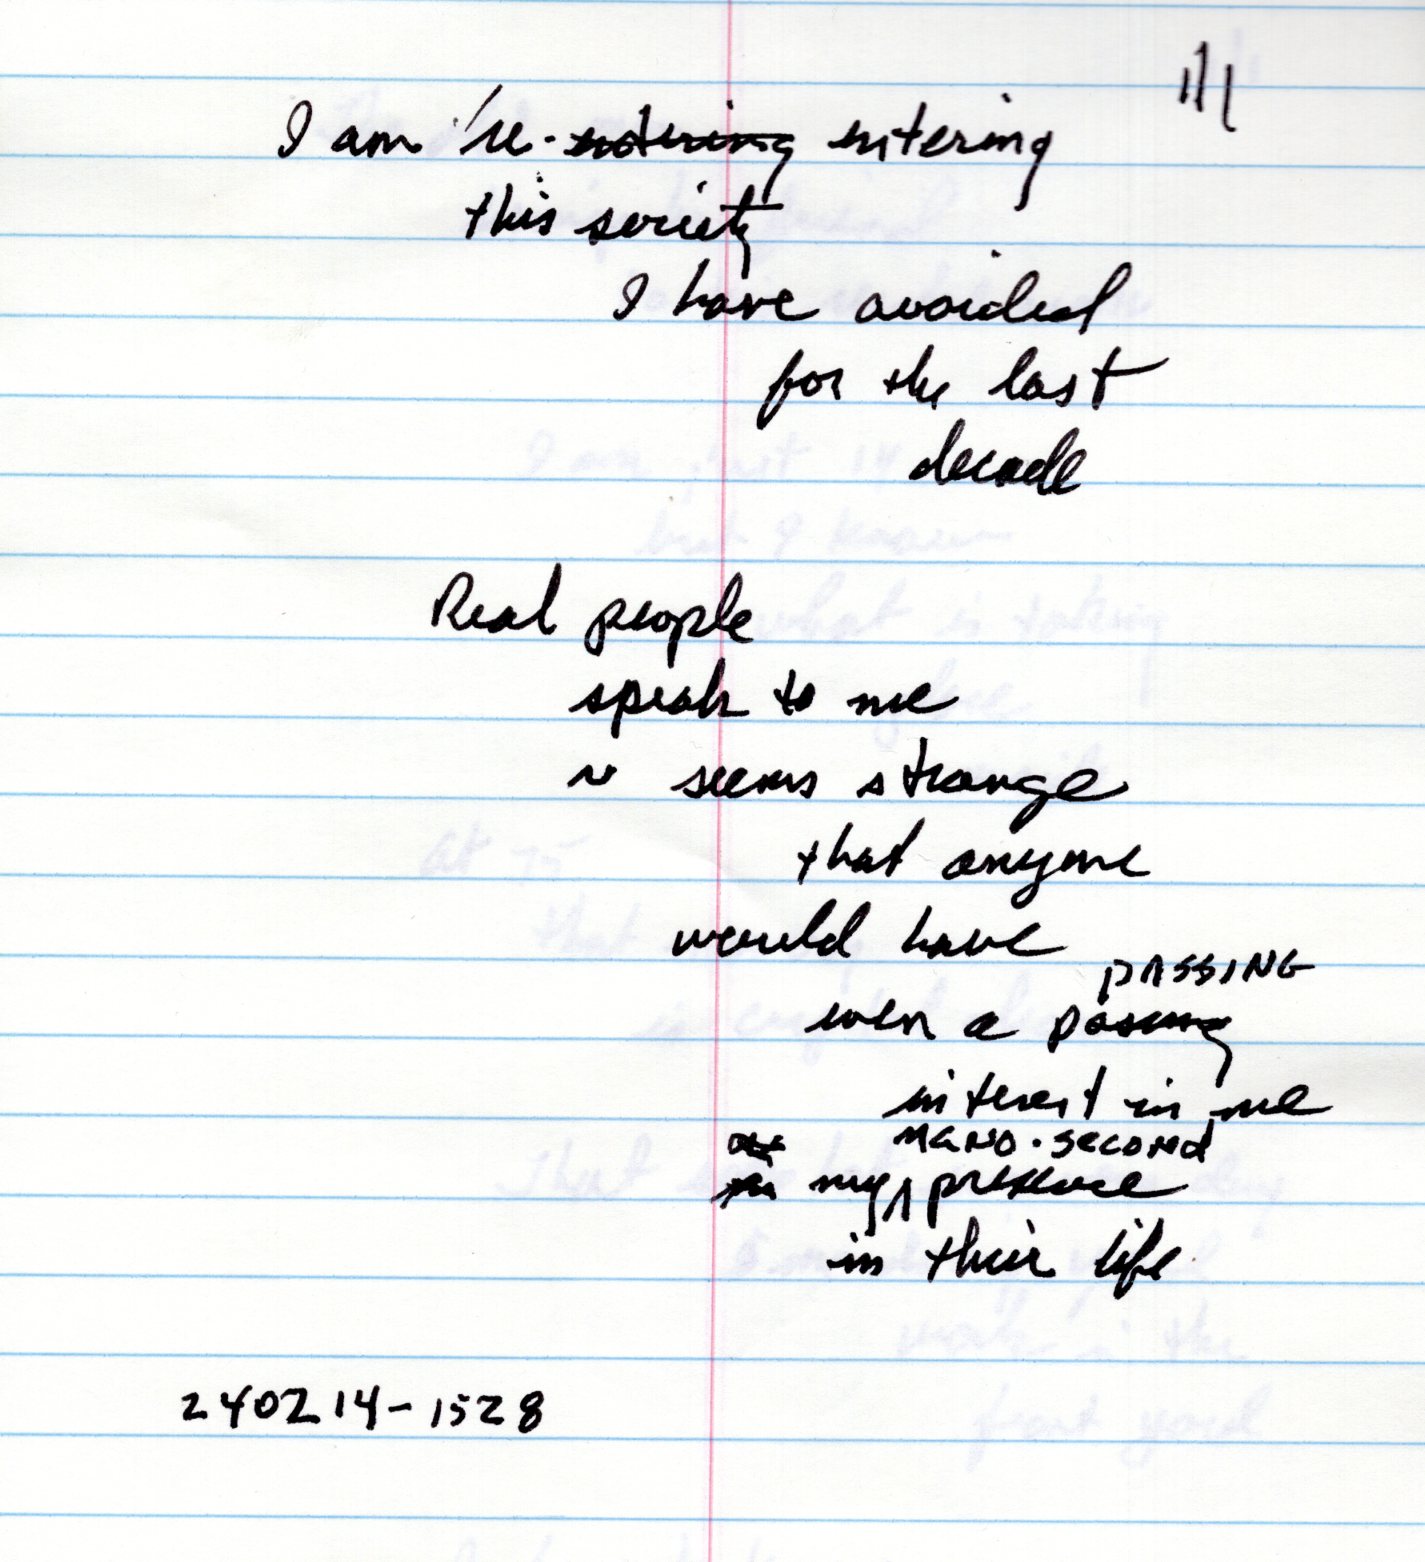 1/1
I am re-entering entering
this society
I have avoided
for the last
decade
Real people
speak to me
n seems strange
that anyone
would have
PASSING
even a passing
interest in me
NANO-SECOND
my presence
in their life
240214-1528